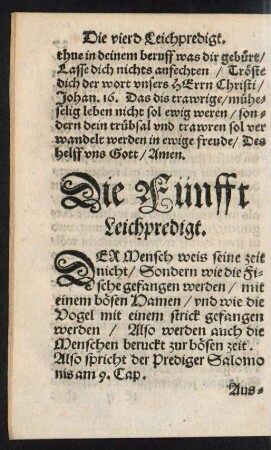 Die vierd Leichpredigt.
thue in deinem beruff was dir gebürt/
Lasse dich nichts anfechten / Tröste
dich der wort vnsers HErrn Christi/
Johan. 16. Das dis trawrige/mühe-
selig leben nicht sol ewig weren / son-
dern dein trübsal vnd trawren sol ver
wandelt werden in ewige freude/ Des
helff vns Gott/ Amen.
Die Fünfft
Leichpredigt.
DER Mensch weis seine zeit
nicht/ Sondern wie die Fi-
sche gefangen werden / mit
einem bösen Hamen/ vnd wie die
Vogel mit einem strick gefangen
werden / Also werden auch die
Menschen beruckt zur bösen zeit.
Also spricht der Prediger Salomo
nis am 9. Cap.
Aus-